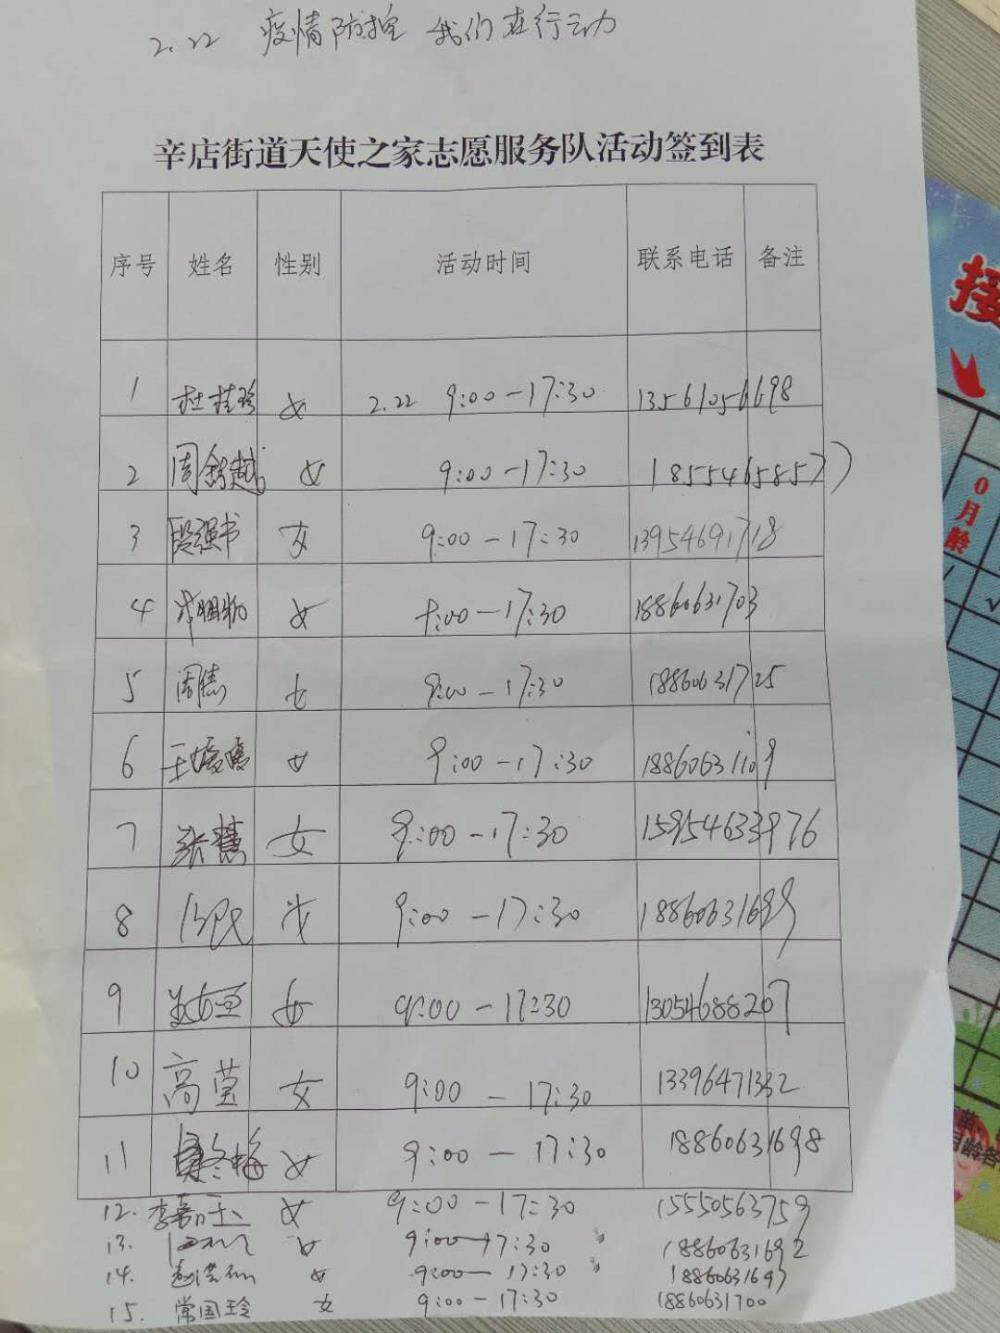 2.22 疫情防控 我们在行动
辛店街道天使之家志愿服务队活动签到表
序号 姓名 性别 活动时间 联系电话 备注
1 杜桂珍 女 2.22 9:00-17:30 13561056698
2 周 女 9:00-17:30 18554658577
3 段强书 女 9:00-17:30 13954691718
4 女 9:00-17:30 18860631703
5 周倩 女 9:00-17:30 18860631725
6 王 女 9:00-17:30 18860631109
7 张慧 女 9:00-17:30 15954633976
8 女 9:00-17:30 18860631699
9 女 9:00-17:30 13054688207
10 高莹 女 9:00-17:30 13396471332
11 冬梅 女 9:00-17:30 18860631698
12. 李嘉玉 女 9:00-17:30 15550563759
13. 女 9:00-17:30 18860631692
14. 女 9:00-17:30 18860631697
15. 常国玲 女 9:00-17:30 18860631700
接
0月龄
月龄